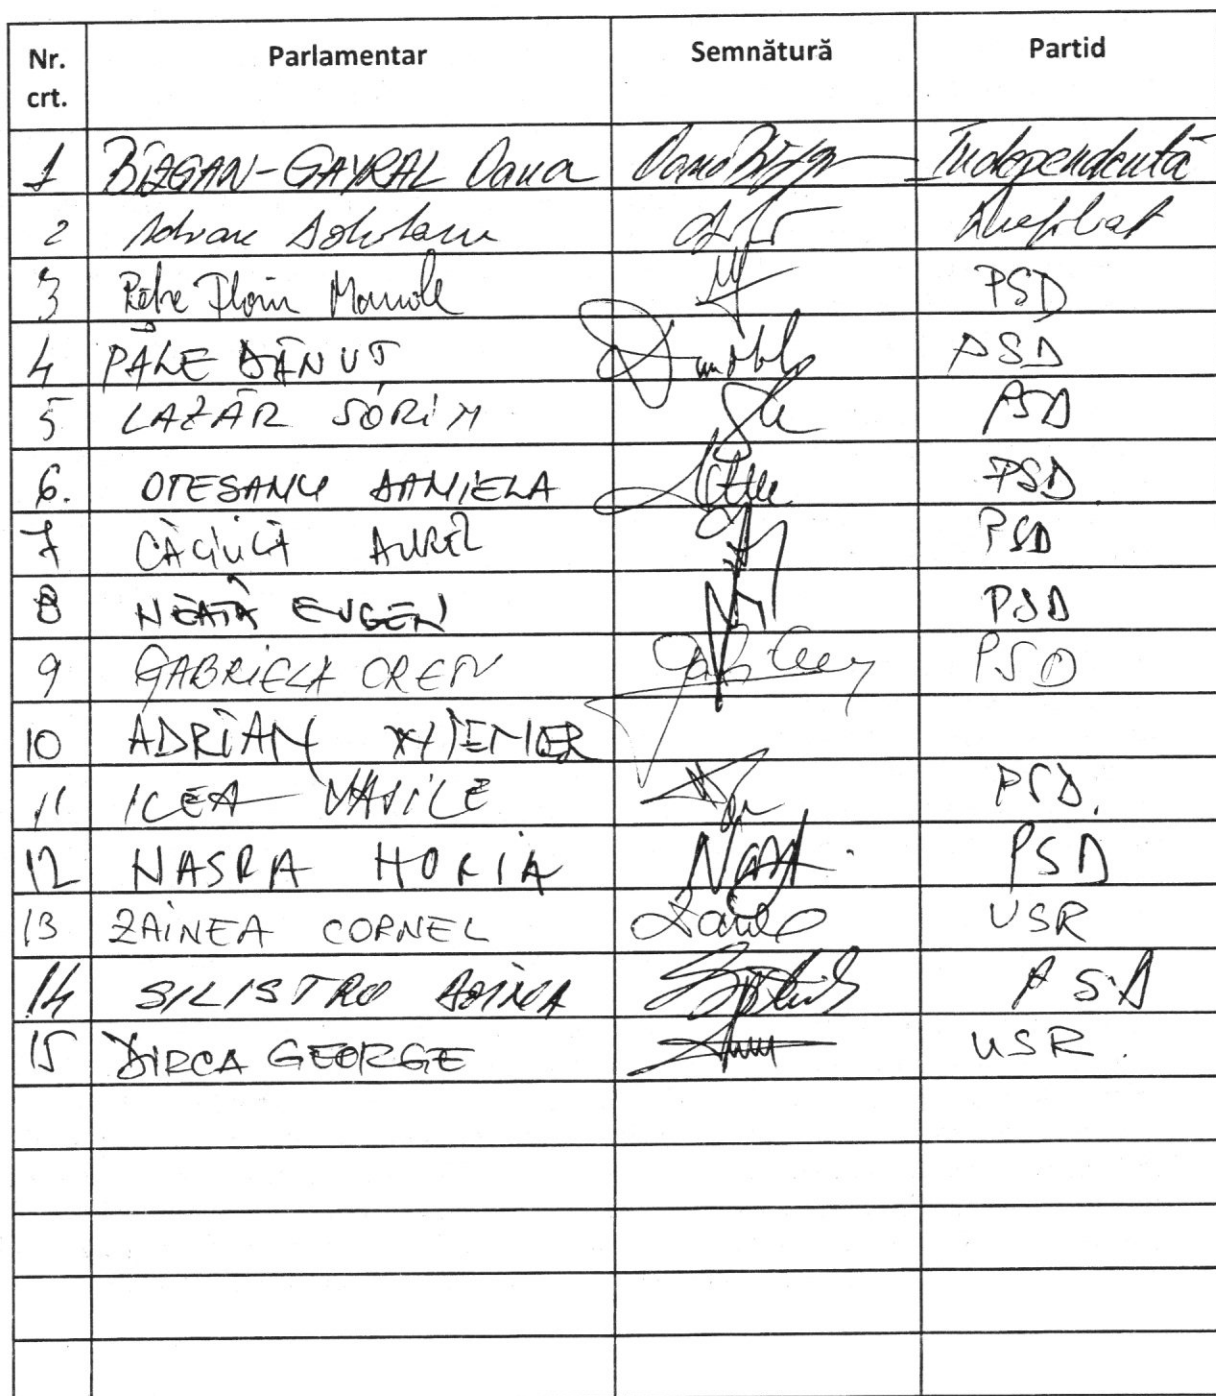 Nr. crt. Parlamentar Semnătură Partid
1 BÎZGAN-GAYRAL Oana Independentă
2
3 Petre Florin Manole PSD
4 PALE DĂNUȚ PSD
5 LAZĂR SORIN PSD
6. OTESANU DANIELA PSD
7 CĂCIULĂ AUREL PSD
8 NEAȚĂ EUGEN PSD
9 GABRIELA CREȚU PSD
10 ADRIAN WIENER
11 ICEA VASILE PSD.
12 NASRA HORIA PSD
13 ZAINEA CORNEL USR
14 SILISTRU DOINA PSD
15 DIRCA GEORGE USR.